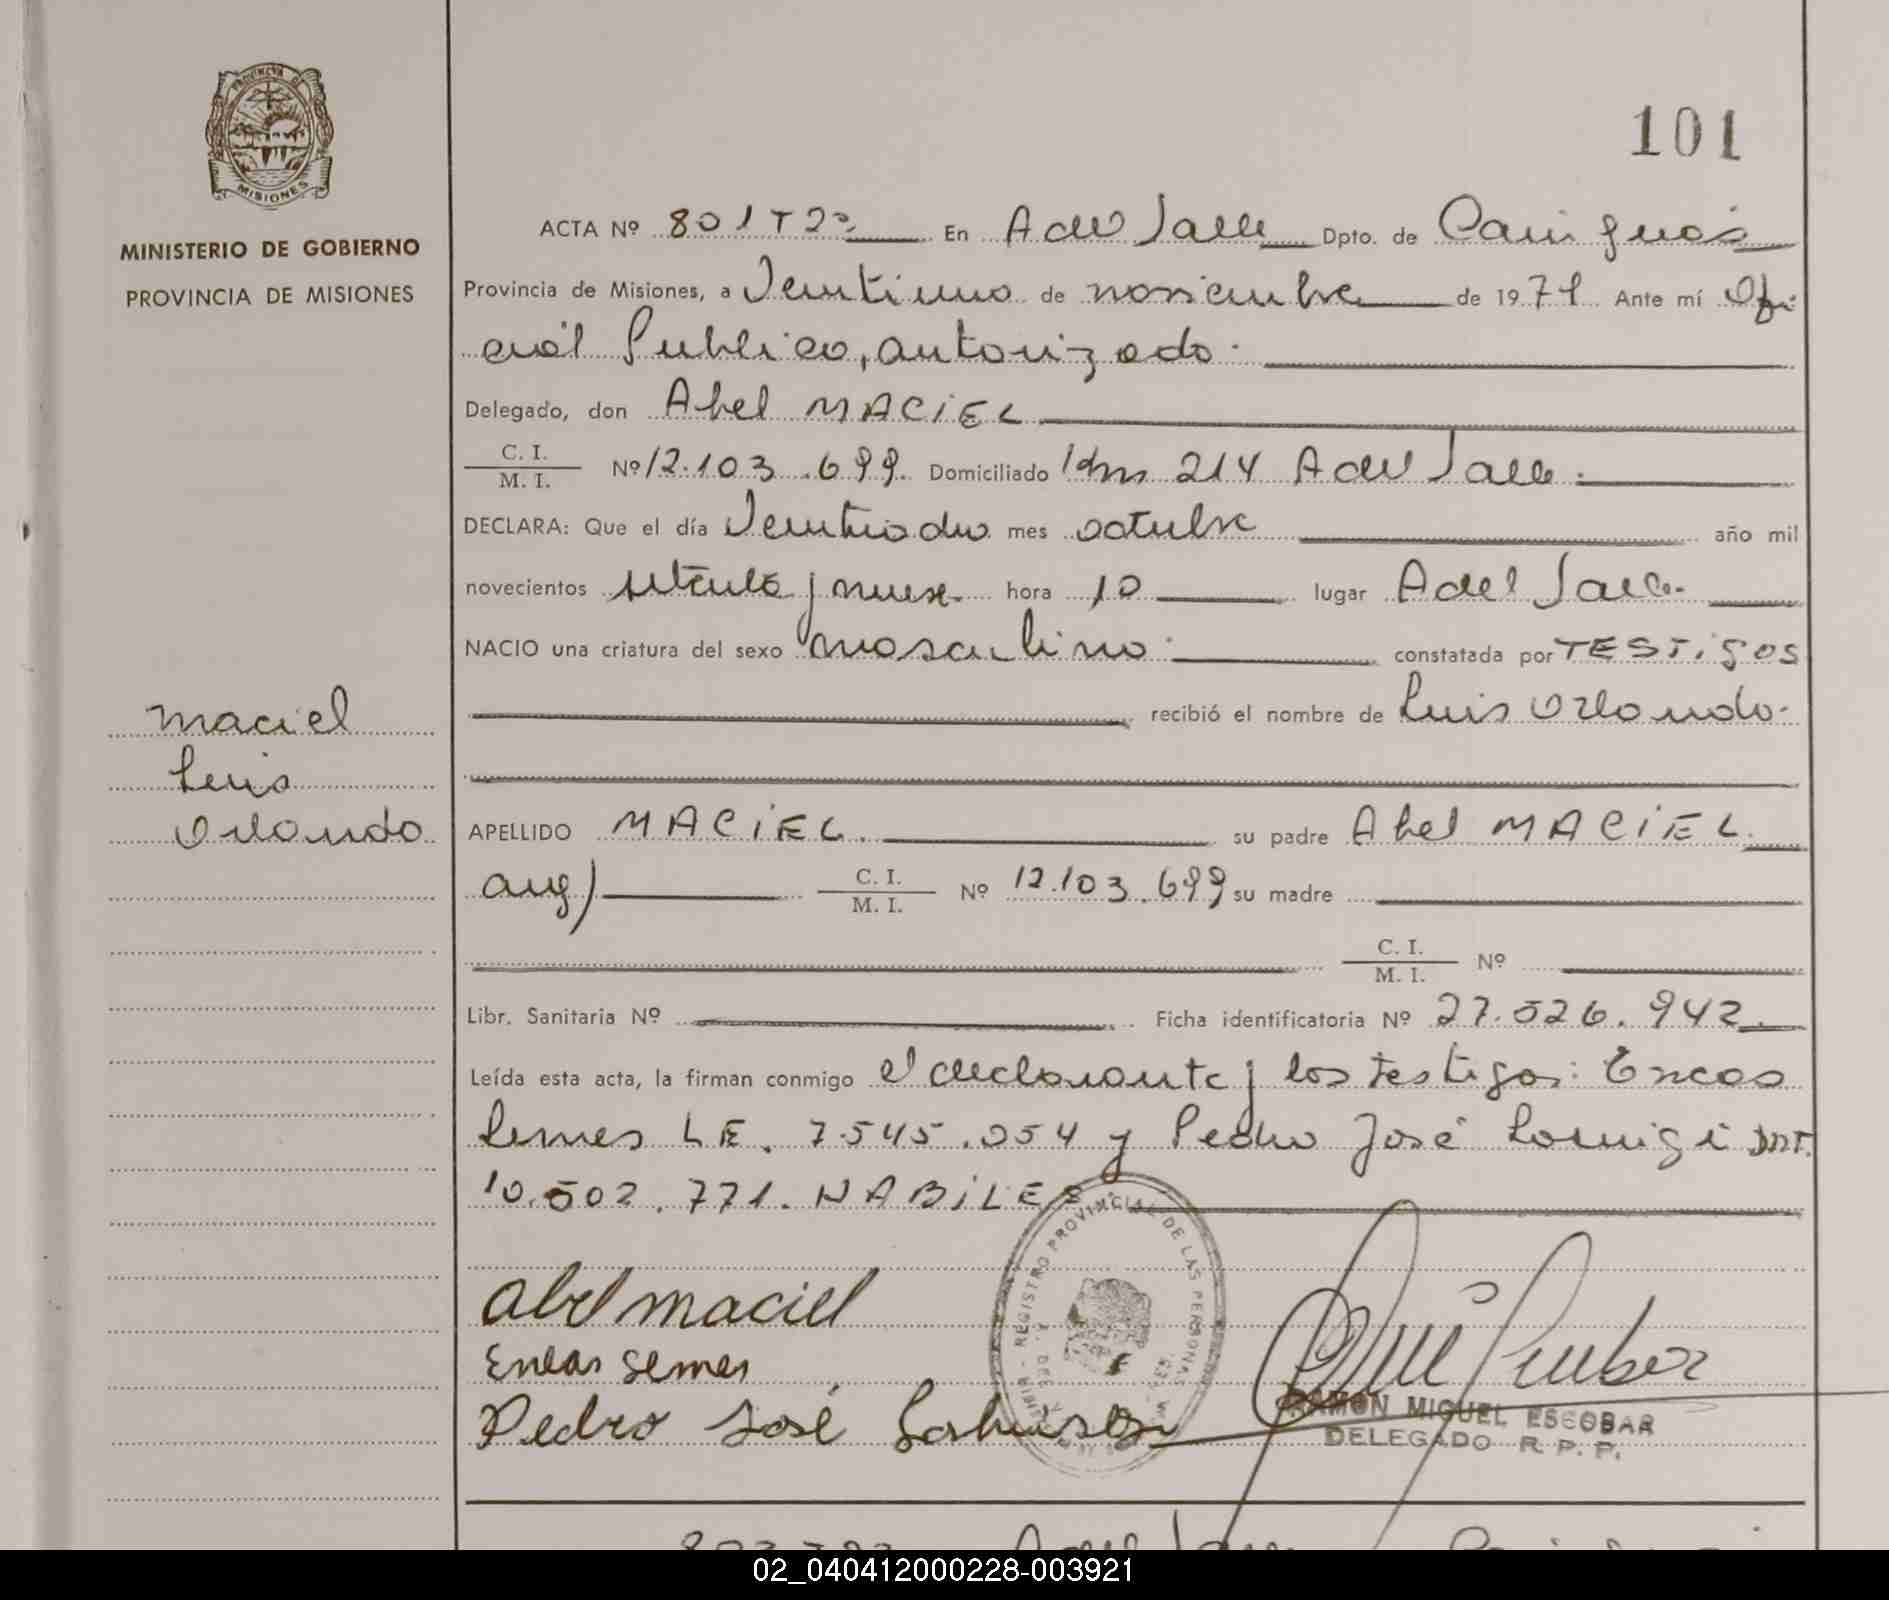 PROVINCIA DE
MISIONES
MINISTERIO DE GOBIERNO
PROVINCIA DE MISIONES
101
ACTA Nº 801 T 2º En A del Valle Dpto. de Cainguás
Provincia de Misiones, a Veintiuno de noviembre de 1979 Ante mí Ofi-
cial Publico, autorizado.
Delegado, don Abel MACIEL
C. I.
M. I. Nº 12.103.699. Domiciliado Km 214 A del Valle.
DECLARA: Que el día Veintiodos mes octubre año mil
novecientos setenta y nueve hora 10 lugar A del Valle.
NACIO una criatura del sexo masculino constatada por TESTiGOS
recibió el nombre de Luis Orlando.
Maciel
Luis
Orlando
APELLIDO MACiEL. su padre Abel MACiEL.
arg) C. I.
M. I. Nº 12.103.699 su madre
C. I.
M. I. Nº
Libr. Sanitaria Nº Ficha identificatoria Nº 27.526.942
Leída esta acta, la firman conmigo el declarante y los testigos: Eneas
Lemes LE. 7.545.054 y Pedro José DNI.
10.502.771. HABiLES.
REGISTRO PROVINCIAL DE LAS PERSONAS
abel maciel
Eneas Lemes
Pedro José
RAMON MIGUEL ESCOBAR
DELEGADO R. P. P.
02_040412000228-003921